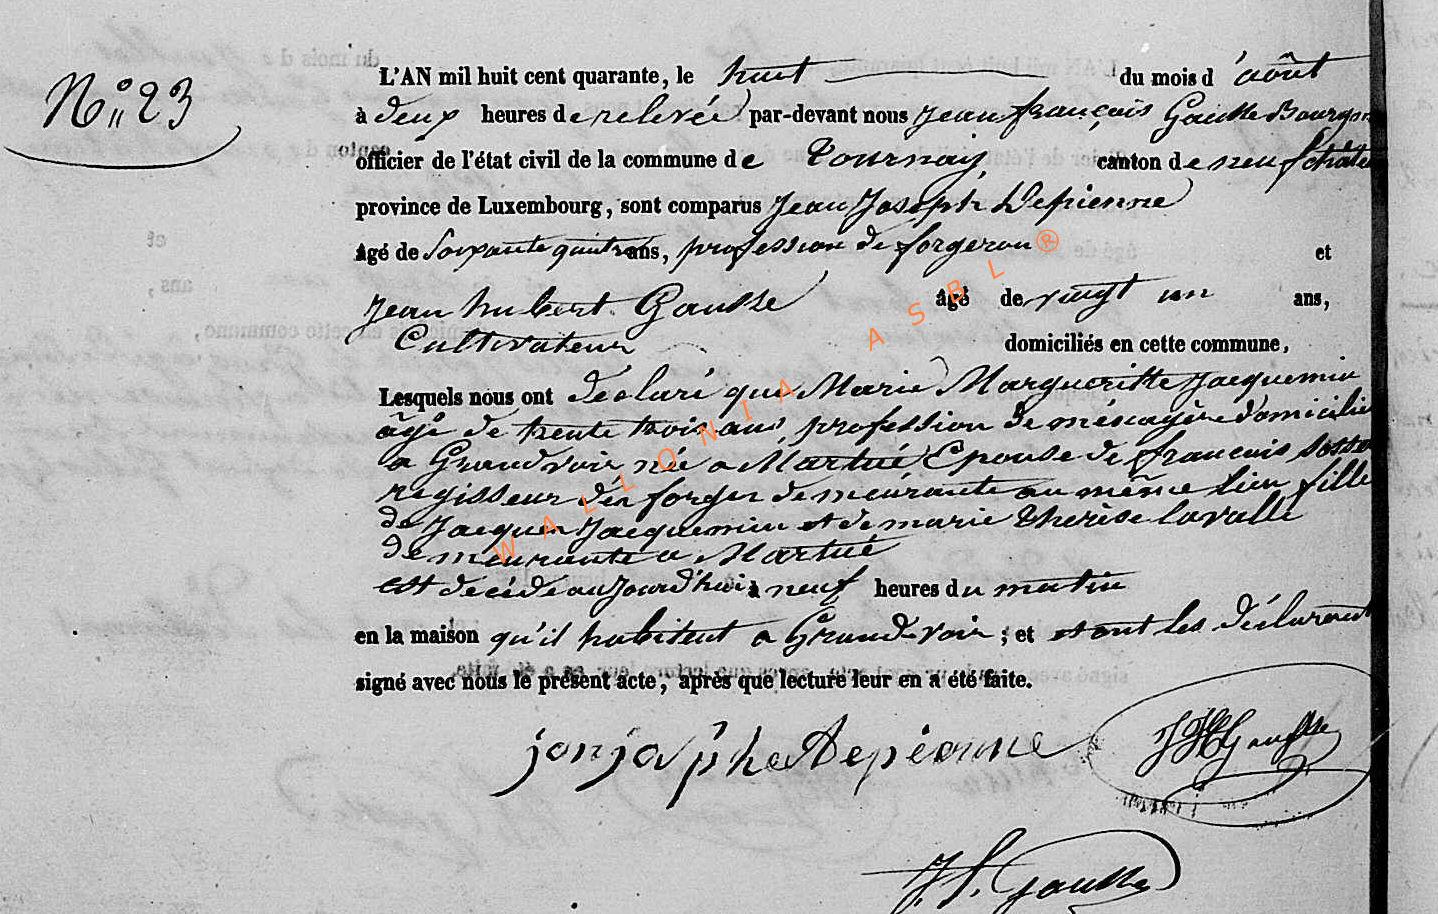 N° 23
L'AN mil huit cent quarante, le huit du mois d'août
à deux heures de relevée par-devant nous jean françois Gausse Bourgm
officier de l'état civil de la commune de Tournay canton de neufchâte
province de Luxembourg, sont comparus Jean Joseph Depienne
âgé de soixante quatre ans, profession de forgeron et
Jean hubert Gausse âgé de vingt un ans,
Cultivateur domiciliés en cette commune,
Lesquels nous ont déclaré que Marie Margueritte Jacquemin
âgé de trente trois ans profession de ménagère domicilié
a Grandvoir née a Martué Epouse de françois
régisseur des forges demeurante au même lieu fille
de Jacques Jacquemin et de marie thérèse lavalle
demeurante a Martué
est décédé aujourd'hui à neuf heures du matin
en la maison qu'il habitent a Grand-voir ; et et ont les déclarant
signé avec nous le présent acte, après que lecture leur en a été faite.
jonjosphe depienne JH Gausse
J. f. Gausse
WALLONIA ASBL ®